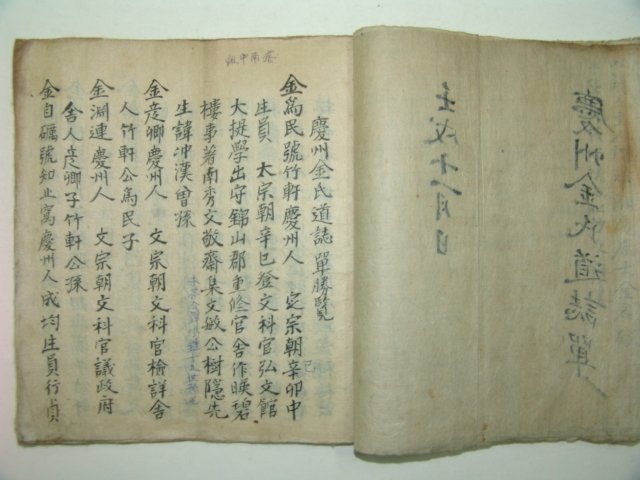 慶州金氏道誌單
壬戌十一月日
慶州金氏道誌單勝覽
金爲民號竹軒慶州人 定宗朝辛卯中
生員 太宗朝辛巳登文科官弘文館
大提學出守錦山郡重修官舍作暎碧
樓事著南秀文敬齋集文敏公樹隱先
生諱冲漢曾孫
金彦卿慶州人 文宗朝文科官檢詳舍
人竹軒公爲民子
金淵連慶州人 文宗朝文科官議政府
舍人彦卿子竹軒公孫
金自礪號知止窩慶州人成均生員行貞